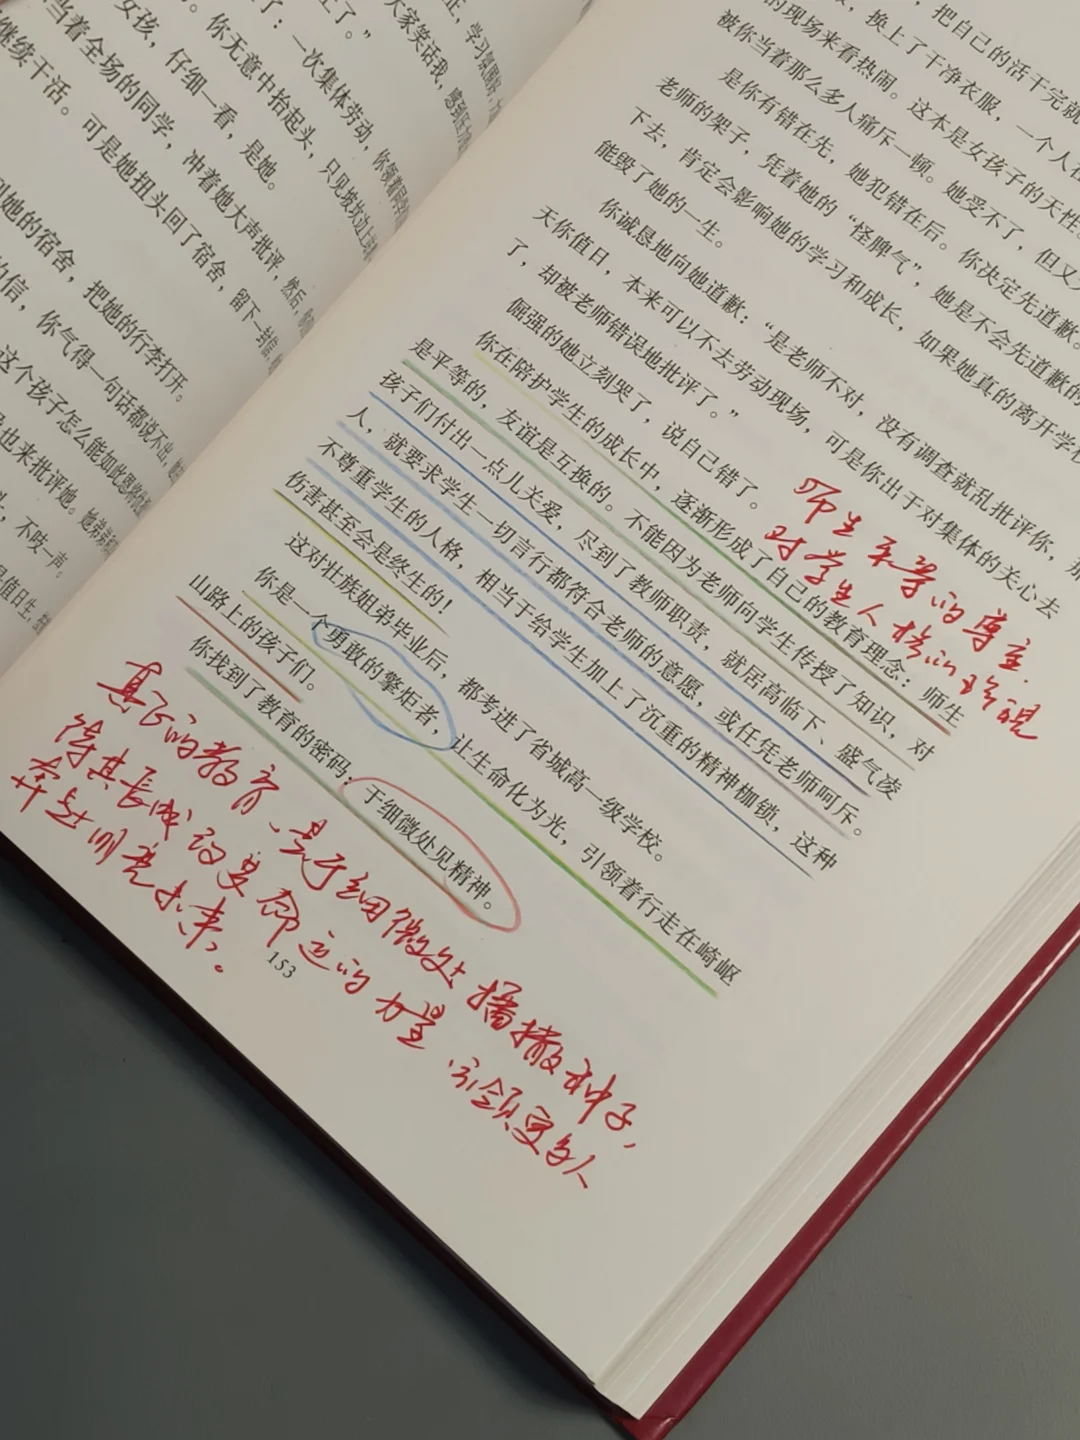 了”。
了：一次集体劳动，你领着同学们
你无意中抬起头，只见坡坎上
女孩，仔细一看，是她。
当着全场的同学，冲着她大声批评，然后，
继续干活。可是她扭头回了宿舍，留下一封信，
到她的宿舍，把她的行李打开。
的信，你气得一句话都说不出，
这个孩子怎么能如此
也来批评她。她弟弟
，不吱一声。
是值日生，
正，学习氛围好，
大家笑话我，感到压力
，把自己的活干完就
，换上了干净衣服，一个人在
的现场来看热闹。这本是女孩子的天性
被你当着那么多人痛斥一顿。她受不了，但又
是你有错在先，她犯错在后。你决定先道歉。
老师的架子，凭着她的“怪脾气”，她是不会先道歉的
下去，肯定会影响她的学习和成长，如果她真的离开学校
能毁了她的一生。
你诚恳地向她道歉：“是老师不对，没有调查就乱批评你，那
天你值日，本来可以不去劳动现场，可是你出于对集体的关心去
了，却被老师错误地批评了。”
倔强的她立刻哭了，说自己错了。
你在陪护学生的成长中，逐渐形成了自己的教育理念：师生
是平等的，友谊是互换的。不能因为老师向学生传授了知识，对
孩子们付出一点儿关爱，尽到了教师职责，就居高临下、盛气凌
人，就要求学生一切言行都符合老师的意愿，或任凭老师呵斥。
不尊重学生的人格，相当于给学生加上了沉重的精神枷锁，这种
伤害甚至会是终生的！
这对壮族姐弟毕业后，都考进了省城高一级学校。
你是一个勇敢的擎炬者，让生命化为光，引领着行走在崎岖
山路上的孩子们。
你找到了教育的密码：于细微处见精神。
师生平等的尊重
对学生人格的珍视
真正的教育、是于细微处播撒种子，
待其长成改变命运的力量，引领更多人
奔赴明亮未来。
153